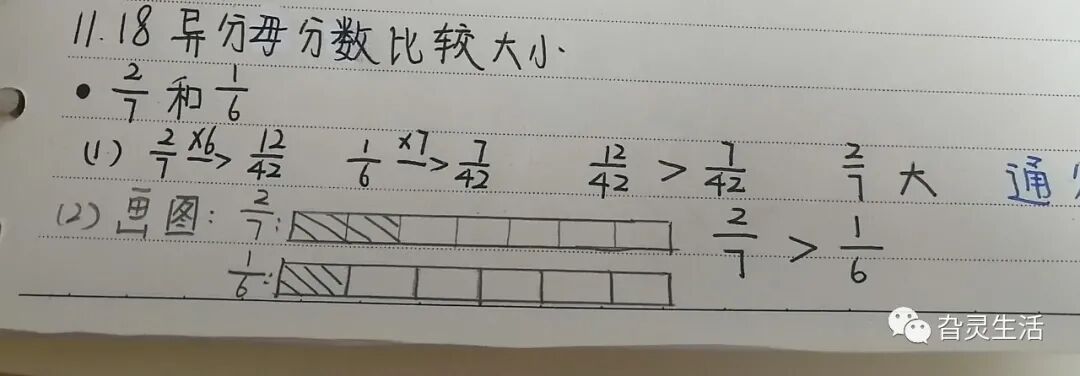 11.18 异分母分数比较大小.
• 2/7 和 1/6
(1) 2/7 ×6→ 12/42 1/6 ×7→ 7/42 12/42 > 7/42 2/7 大 通
(2) 画图: 2/7: 2/7 > 1/6
1/6:
旮灵生活